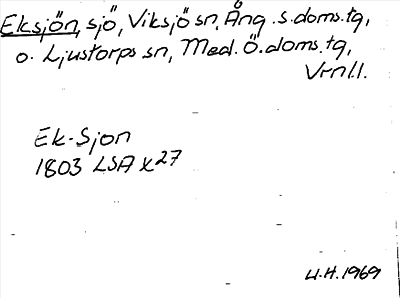 Eksjön, sjö, Viksjö sn, Ång. s. doms. tg,
o. Ljustorps sn, Med. Ö. doms. tg,
Vrnl.l.
Ek-Sjon
1803 LSA X27
U.H. 1969